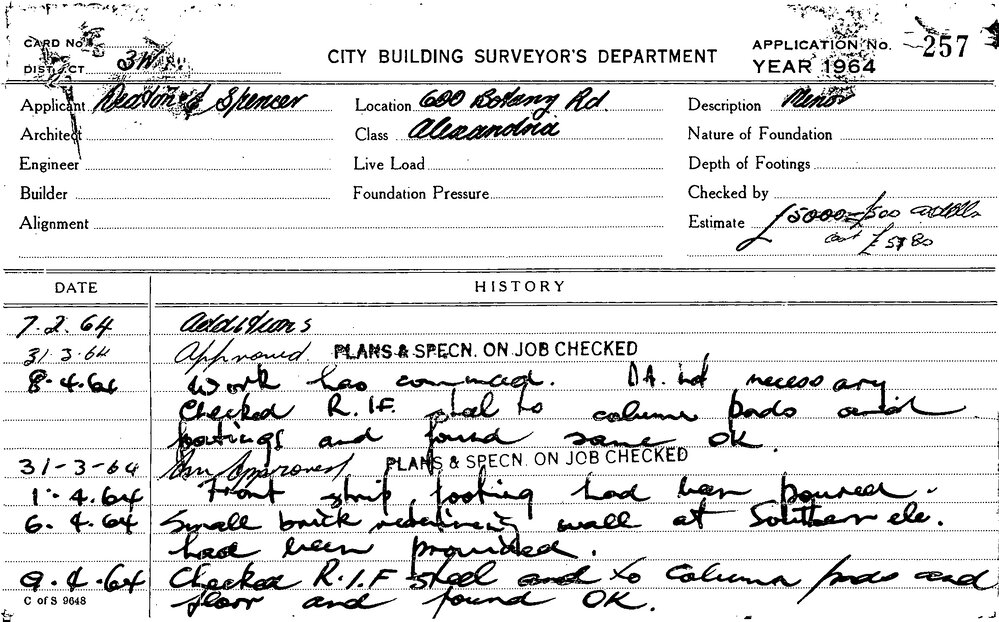 CARD No.
DISTRICT 3W
CITY BUILDING SURVEYOR'S DEPARTMENT
APPLICATION No. 257
YEAR 1964
Applicant Deaton & Spencer
Location 600 Botany Rd.
Description
Architect
Class Alexandria
Nature of Foundation
Engineer
Live Load
Depth of Footings
Builder
Foundation Pressure
Checked by
Alignment
Estimate £5000 = £500
cost £5780
DATE HISTORY
7.2.64 Additions
31.3.64 Approved PLANS & SPECN. ON JOB CHECKED
8.4.64 Work has commced. D.A. not necessary
Checked R.I.F. steel to column pads and
footings and found same OK.
31-3-64 Approved PLANS & SPECN. ON JOB CHECKED
1.4.64 Front strip footing had been poured.
6.4.64 Small brick retaining wall at Southern ele.
had been provided.
9.4.64 Checked R.I.F steel and to column pads and
C of S 9648 floor and found OK.